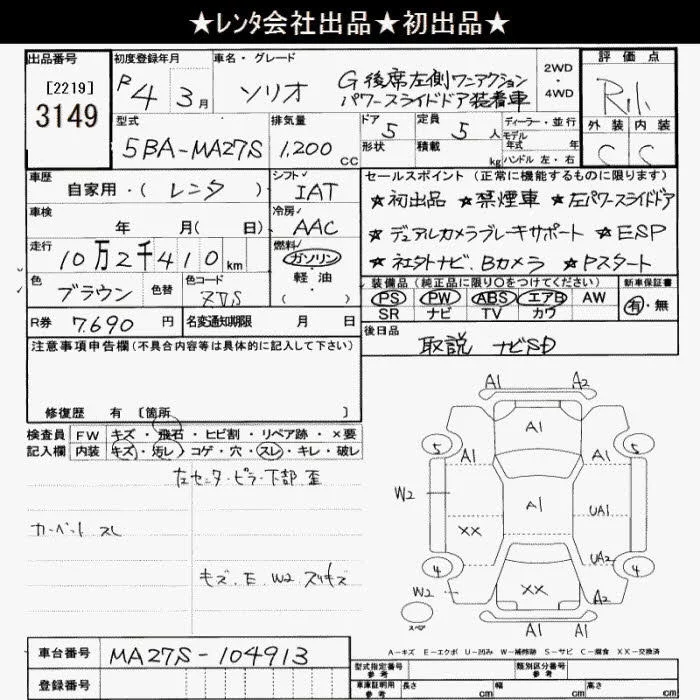 ★レンタ会社出品★初出品★
出品番号
[2219]
3149
初度登録年月
R4 3月
車名・グレード
ソリオ
G 後席左側ワンアクション
パワースライドドア装着車
2WD
・
4WD
評価点
R.1.
外装 内装
C C
型式
5BA-MA27S
排気量
1,200 CC
ドア 5
形状
定員 5 人
積載 kg
ディーラー・並行
モデル
年式 年
ハンドル 左・右
車歴
自家用・(レンタ)
シフト
IAT
車検
年 月(日)
冷房
AAC
走行
10万2千410km
燃料
ガソリン
・
軽・油
・
( )
色
ブラウン
色替
色コード
R券 7,690 円
名変通知期限 月 日
セールスポイント(正常に機能するものに限ります)
★初出品 ★禁煙車 ★左パワースライドドア
★デュアルカメラブレーキサポート ★ESP
★社外ナビ、Bカメラ ★Pスタート
装備品(純正品に限り○をつけてください)
PS PW ABS エアB AW
SR ナビ TV カワ
新車保証書
有・無
後日品
取説 ナビSD
注意事項申告欄(不具合内容等は具体的に記入して下さい)
修復歴 有 [箇所 ]
検査員
記入欄
FW キズ・飛石・ヒビ割・リペア跡・×要
内装 キズ・汚レ・コゲ・穴・スレ・キレ・破レ
左センターピラー下部歪
カーペットスレ
キズ、E、W2 スリキズ
A1 A2
A1
5 A1 A1 5
W2 A1 UA1
XX
4 UA2 4
W2 XX A2
スペア
A1 A1
A-キズ E-エクボ U-凹み W-補修跡 S-サビ C-腐食 XX-交換済
車台番号 MA27S-104913
登録番号
型式指定番号
参考
類別区分番号
参考
車庫証明用
参考
長さ cm
幅 cm
高さ cm